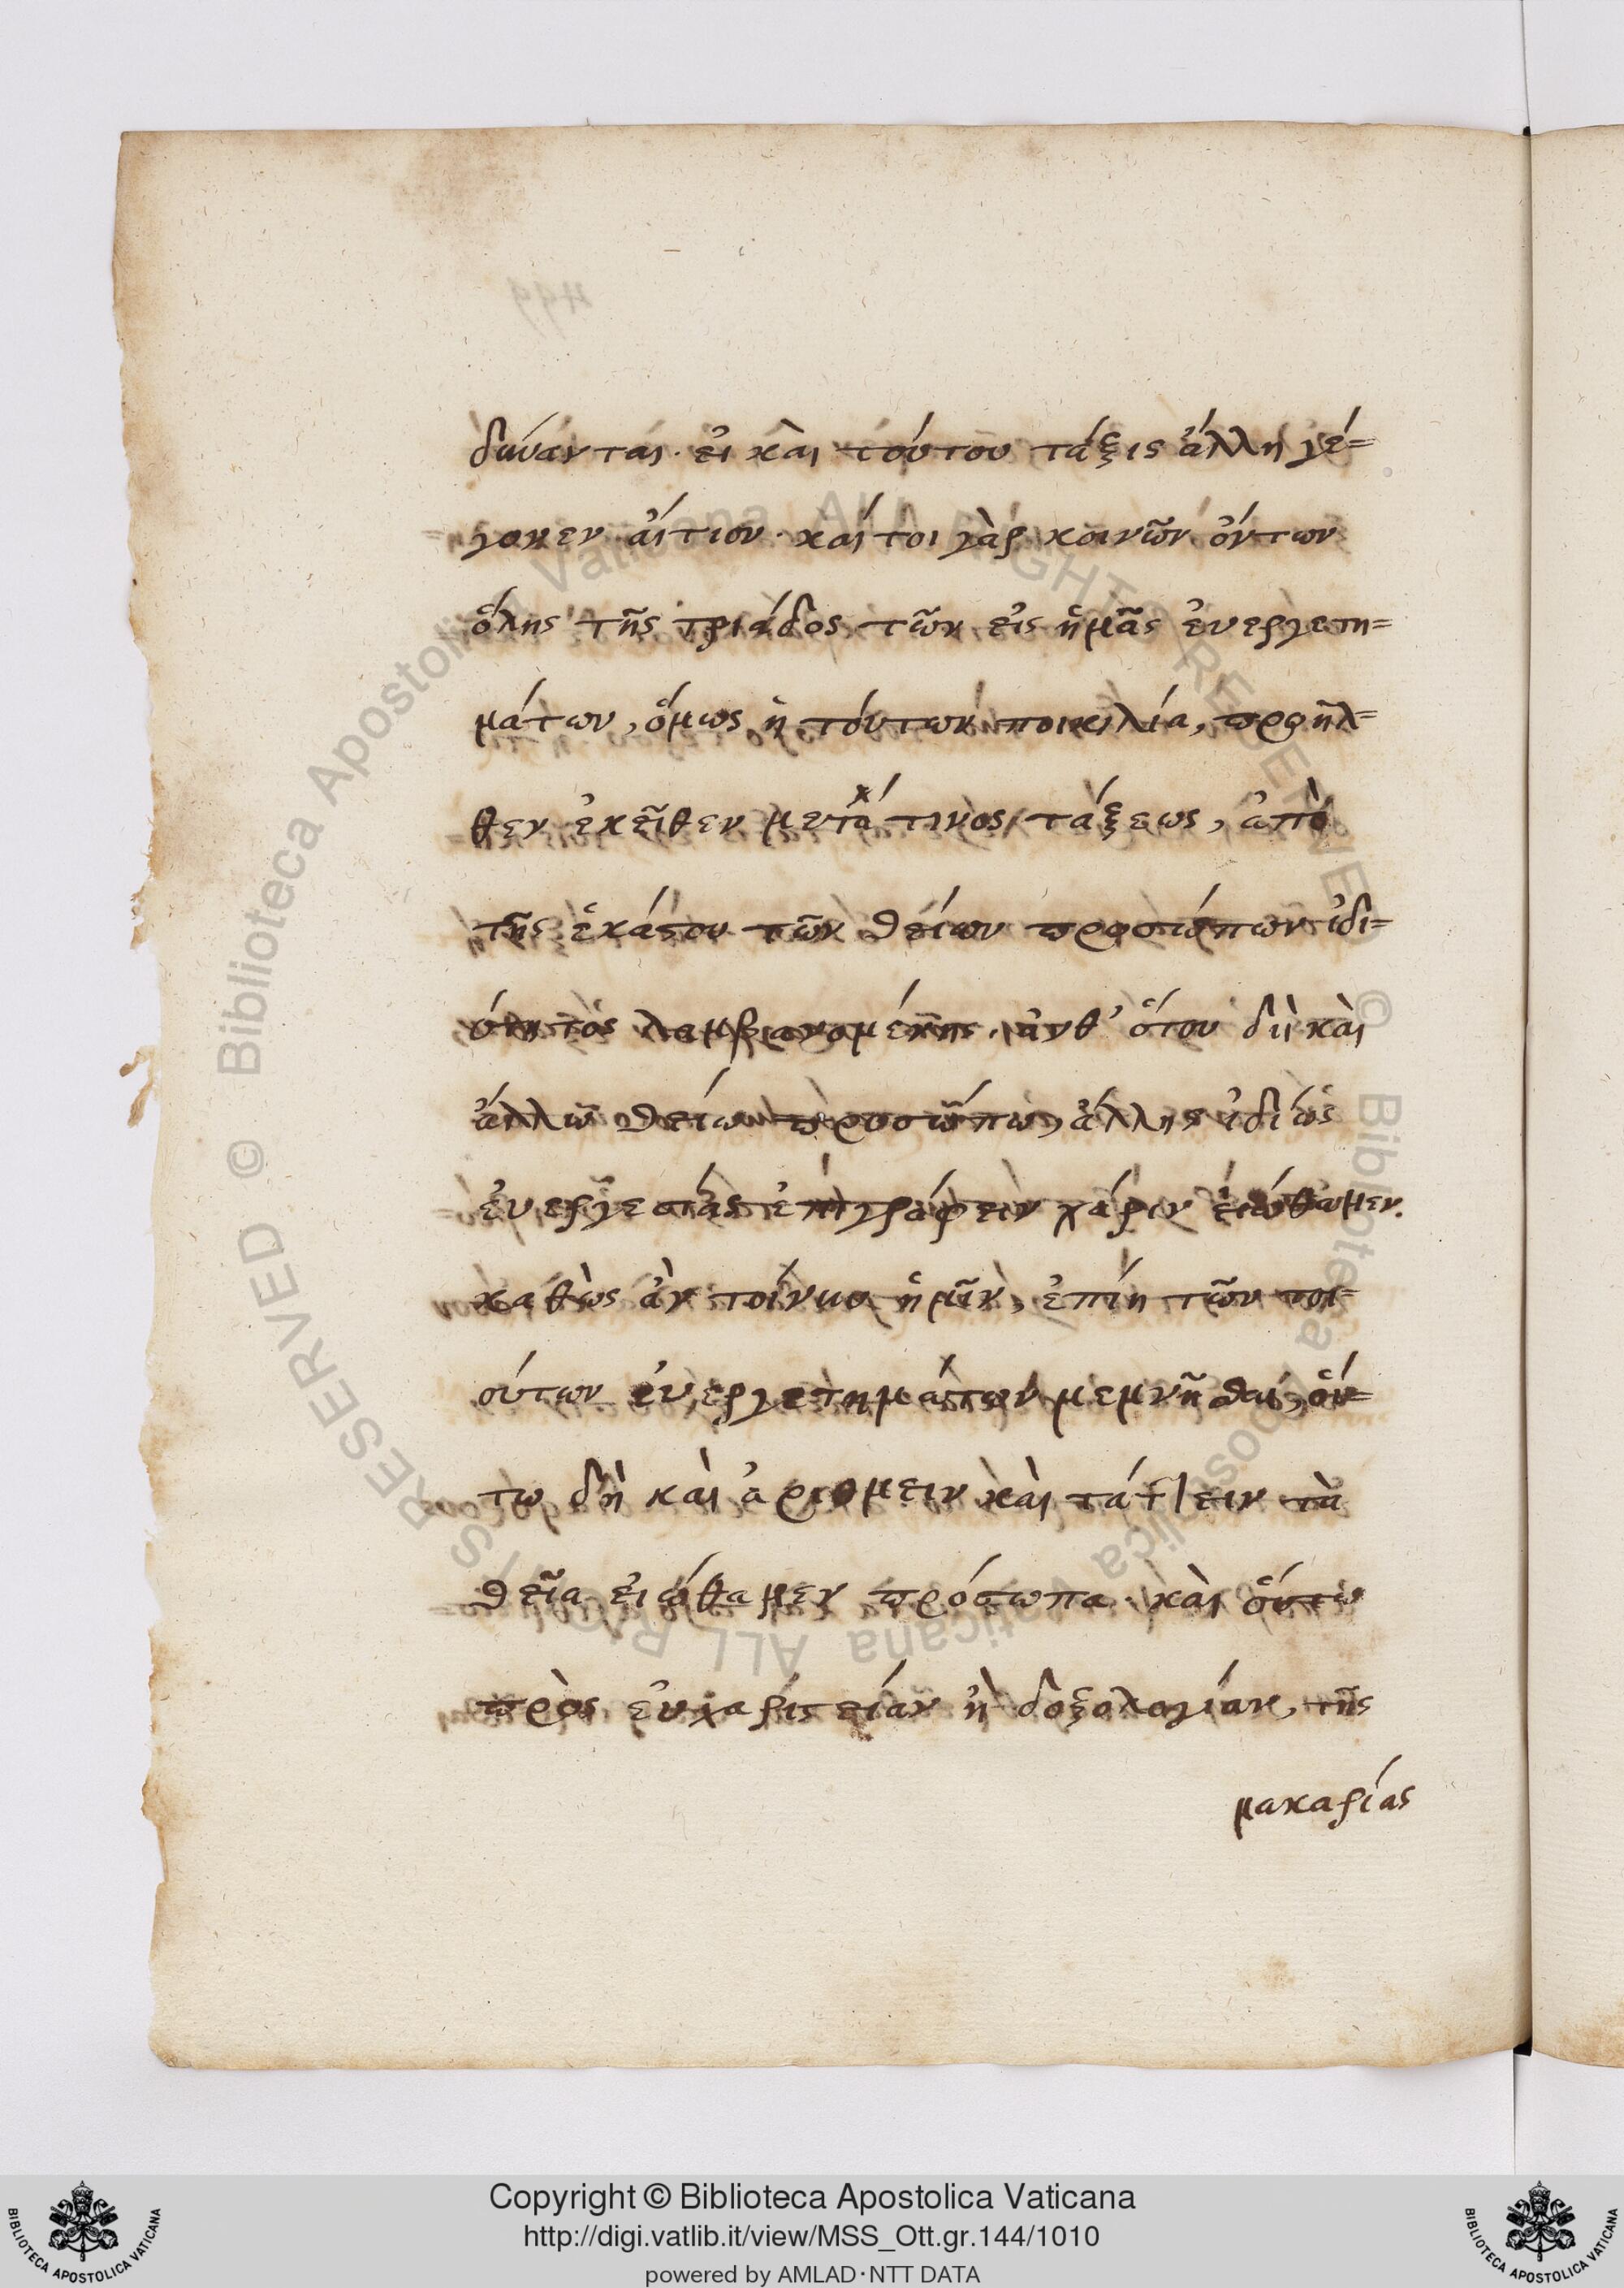 δύνανται. εἰ καὶ τούτου τάξις ἄλλη γέ=
γονεν αἴτιον. καίτοι γὰρ κοινῶν ὄντων
ὅλης τῆς τριάδος τῶν εἰς ἡμᾶς ἐυεργετη=
μάτων, ὅμως ἡ τούτων ποικιλία, προῆλ=
θεν ἐκεῖθεν μετά τινος τάξεως, ἀπὸ
τῆς ἑκάστου τῶν θείων προσώπων ἰδι=
ότητος λαμβανομένης. ἀνθ' ὅτου δὴ καὶ
ἄλλω θείω προσώπω, ἄλλης ἰδίως
ἐυεργεσίας ἐπιγράφειν χάριν εἰώθαμεν.
καθὼς ἂν τοίνυν ἡμῖν, ἐπίη τῶν τοι=
ούτων ἐυεργετημάτων μεμνῆσθαι, οὕ=
τω δὴ καὶ ἀριθμειν καὶ τάττειν τὰ
θεῖα εἰώθαμεν πρόσωπα. καὶ οὕτω
πρὸς ἐυχαριστείαν ἢ δοξολογίαν, τῆς
μακαρίας
Copyright © Biblioteca Apostolica Vaticana
http://digi.vatlib.it/view/MSS_Ott.gr.144/1010
powered by AMLAD·NTT DATA
BIBLIOTECA APOSTOLICA VATICANA
BIBLIOTECA APOSTOLICA VATICANA
© Biblioteca Apostolica Vaticana ALL RIGHTS RESERVED
© Biblioteca Apostolica Vaticana ALL RIGHTS RESERVED